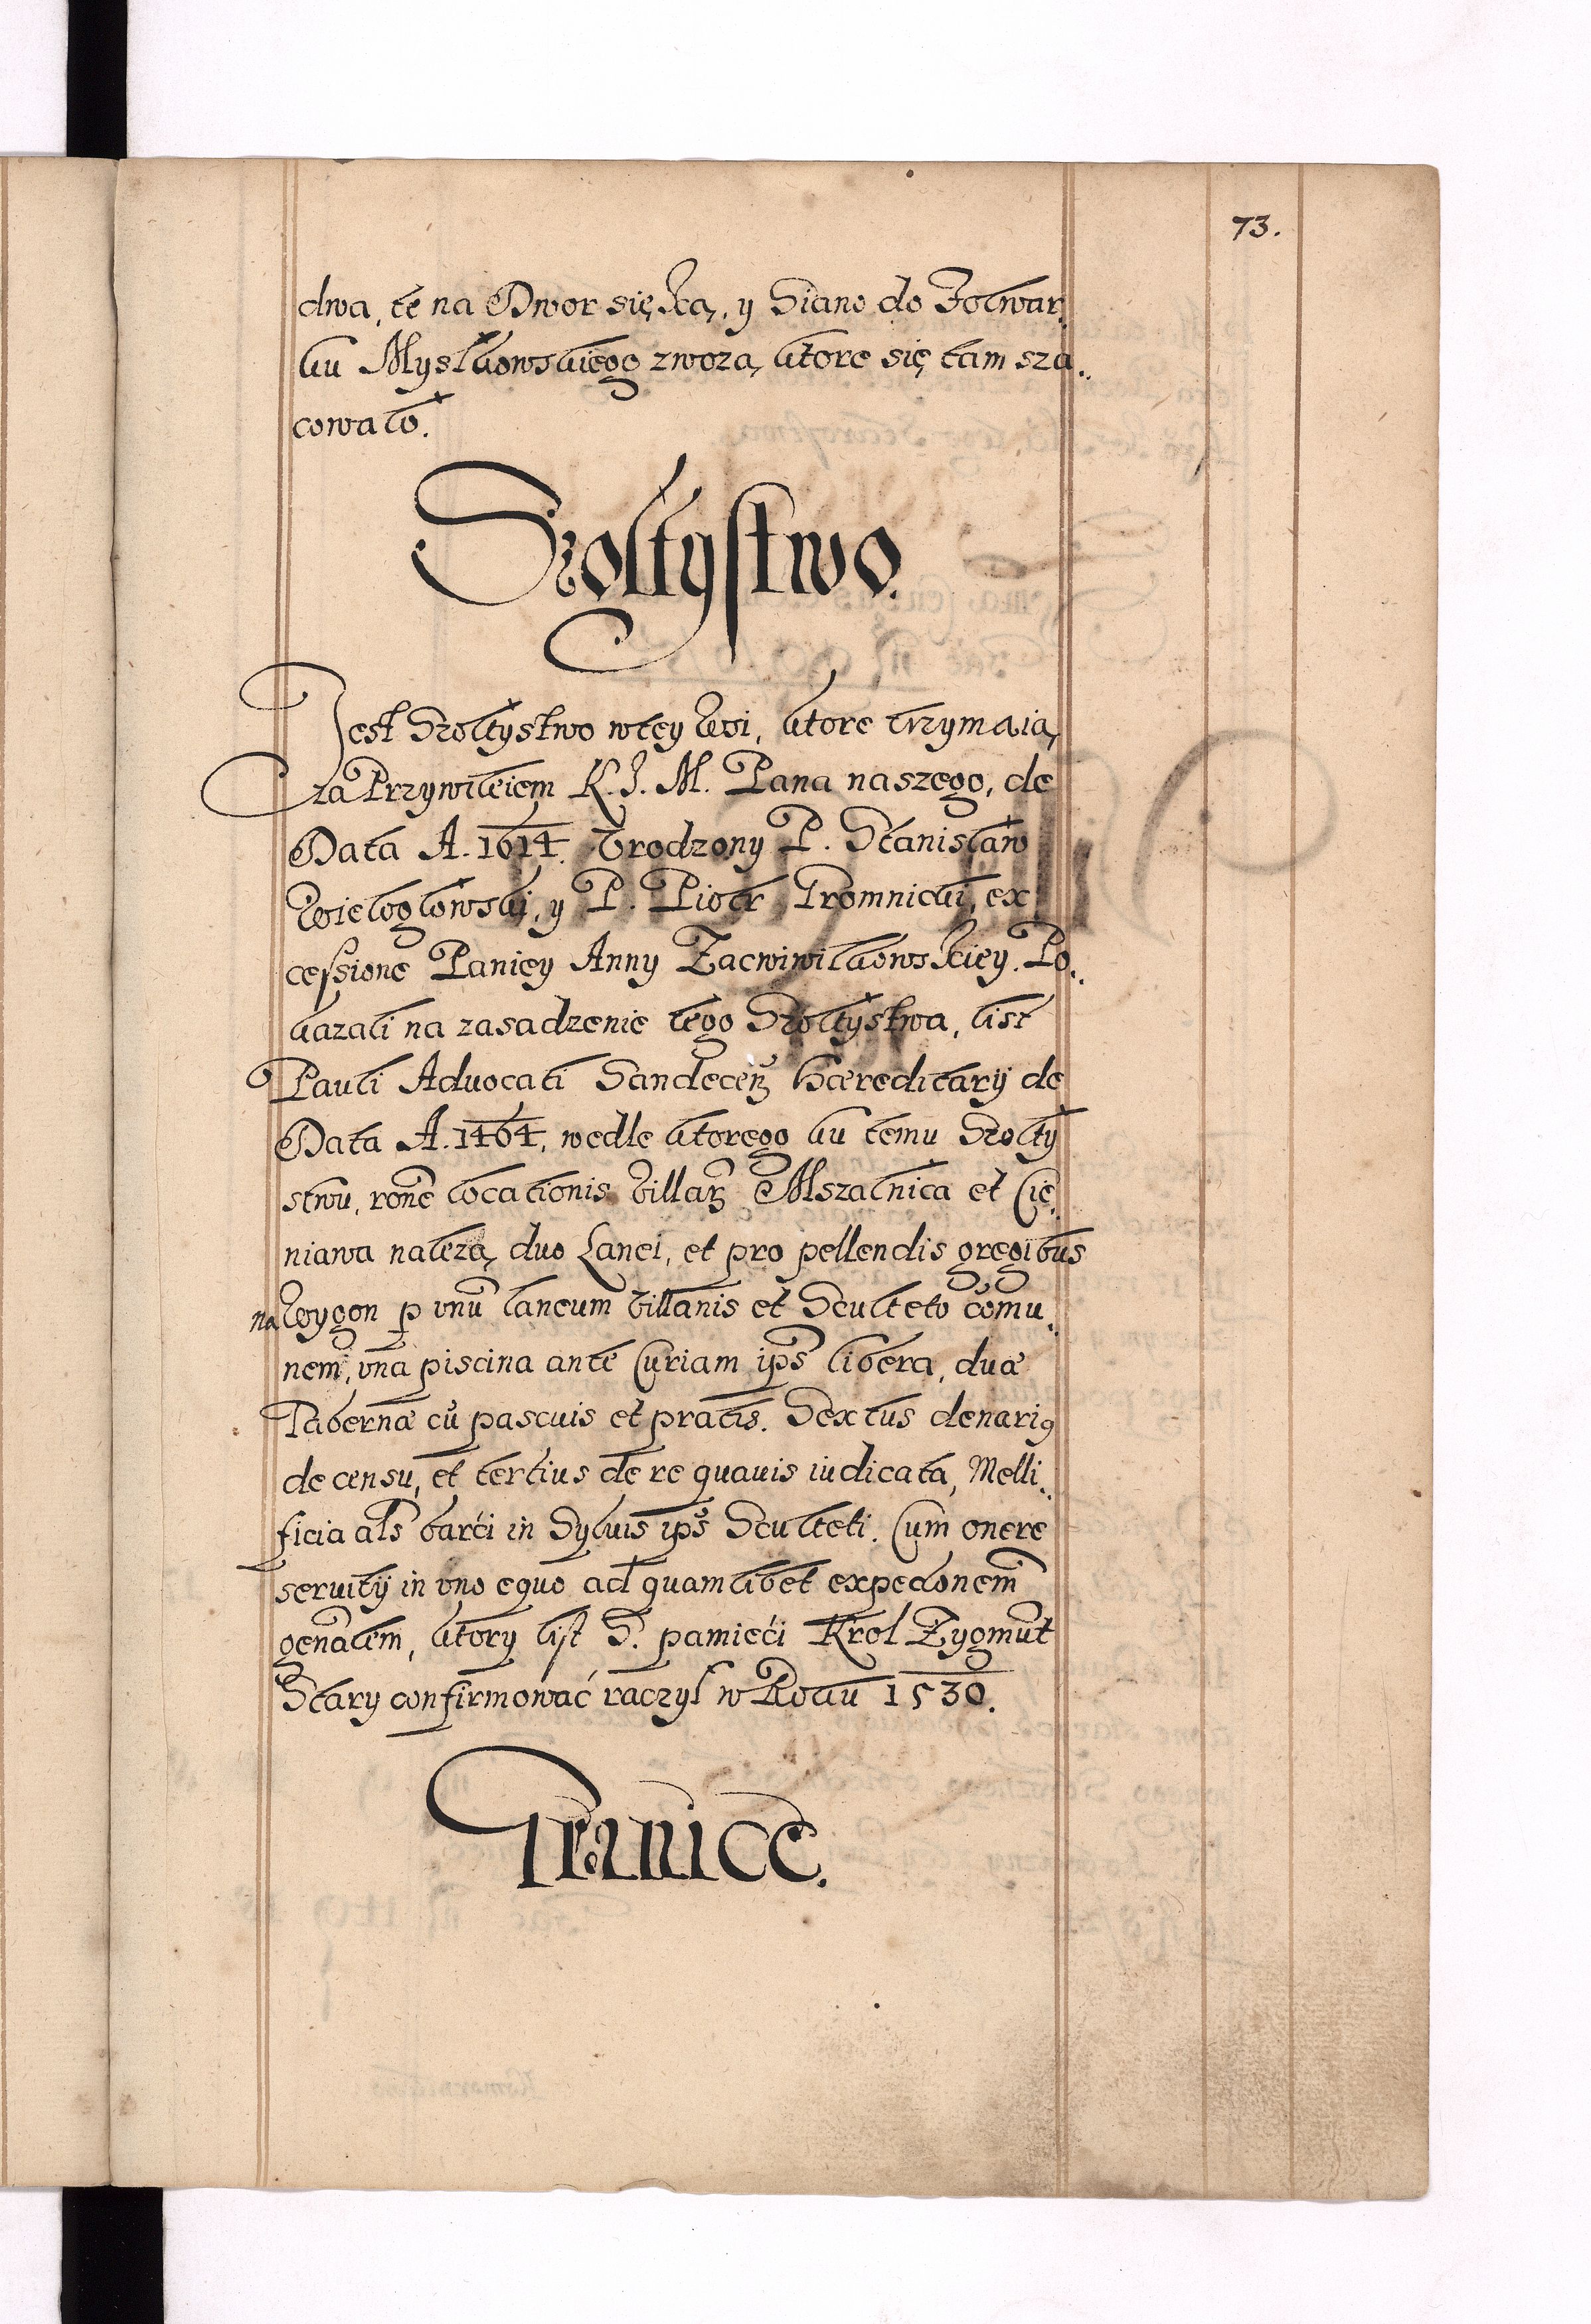 73.
dwa, te na Dwor sięką, y Siano do Folwar,
ku Mysłkowskiego zwożą, ktore się tam sza,,
cowało.
Szołtystwo.
Jest Szołtystwo w tey Wsi, ktore trzymaią,
za Przywileiem K. J. M. Pana naszego, de
Data A. 1614. Vrodzony P. Stanisław
Wielogłowski, y P. Piotr Gromnicki, ex
cessione Paniey Anny Zacwiwilkowskiey. Po,
kazali na zasadzenie tego Szołtystwa, list
Pauli Aduocati Sandecen̄ Hæreditarij de
Data A. 1464, wedle ktorego ku temu Szołty
stwu, rōne locationis Villarꝝ Mszalnica et Cie,
niawa należą, duo Lanei, et pro pellendis gregibus
na Wygon ꝑ vnū laneum Villanis et Sculteto cōmu,
nem, vna piscina ante Curiam ips̄ libera, duæ
Tabernæ cū pascuis et pratis. Sextus denariꝯ
de censu, et tertius de re quauis iudicata, Melli,,
ficia al̄s barći in Syluis ips̄ Sculteti. Cum onere
seruitij in vno equo ad quamlibet expedonem̄
gen̄alem, ktory list S. pamięći Krol Zygmūt
Stary confirmować raczył w Roku 1530.
Granice.